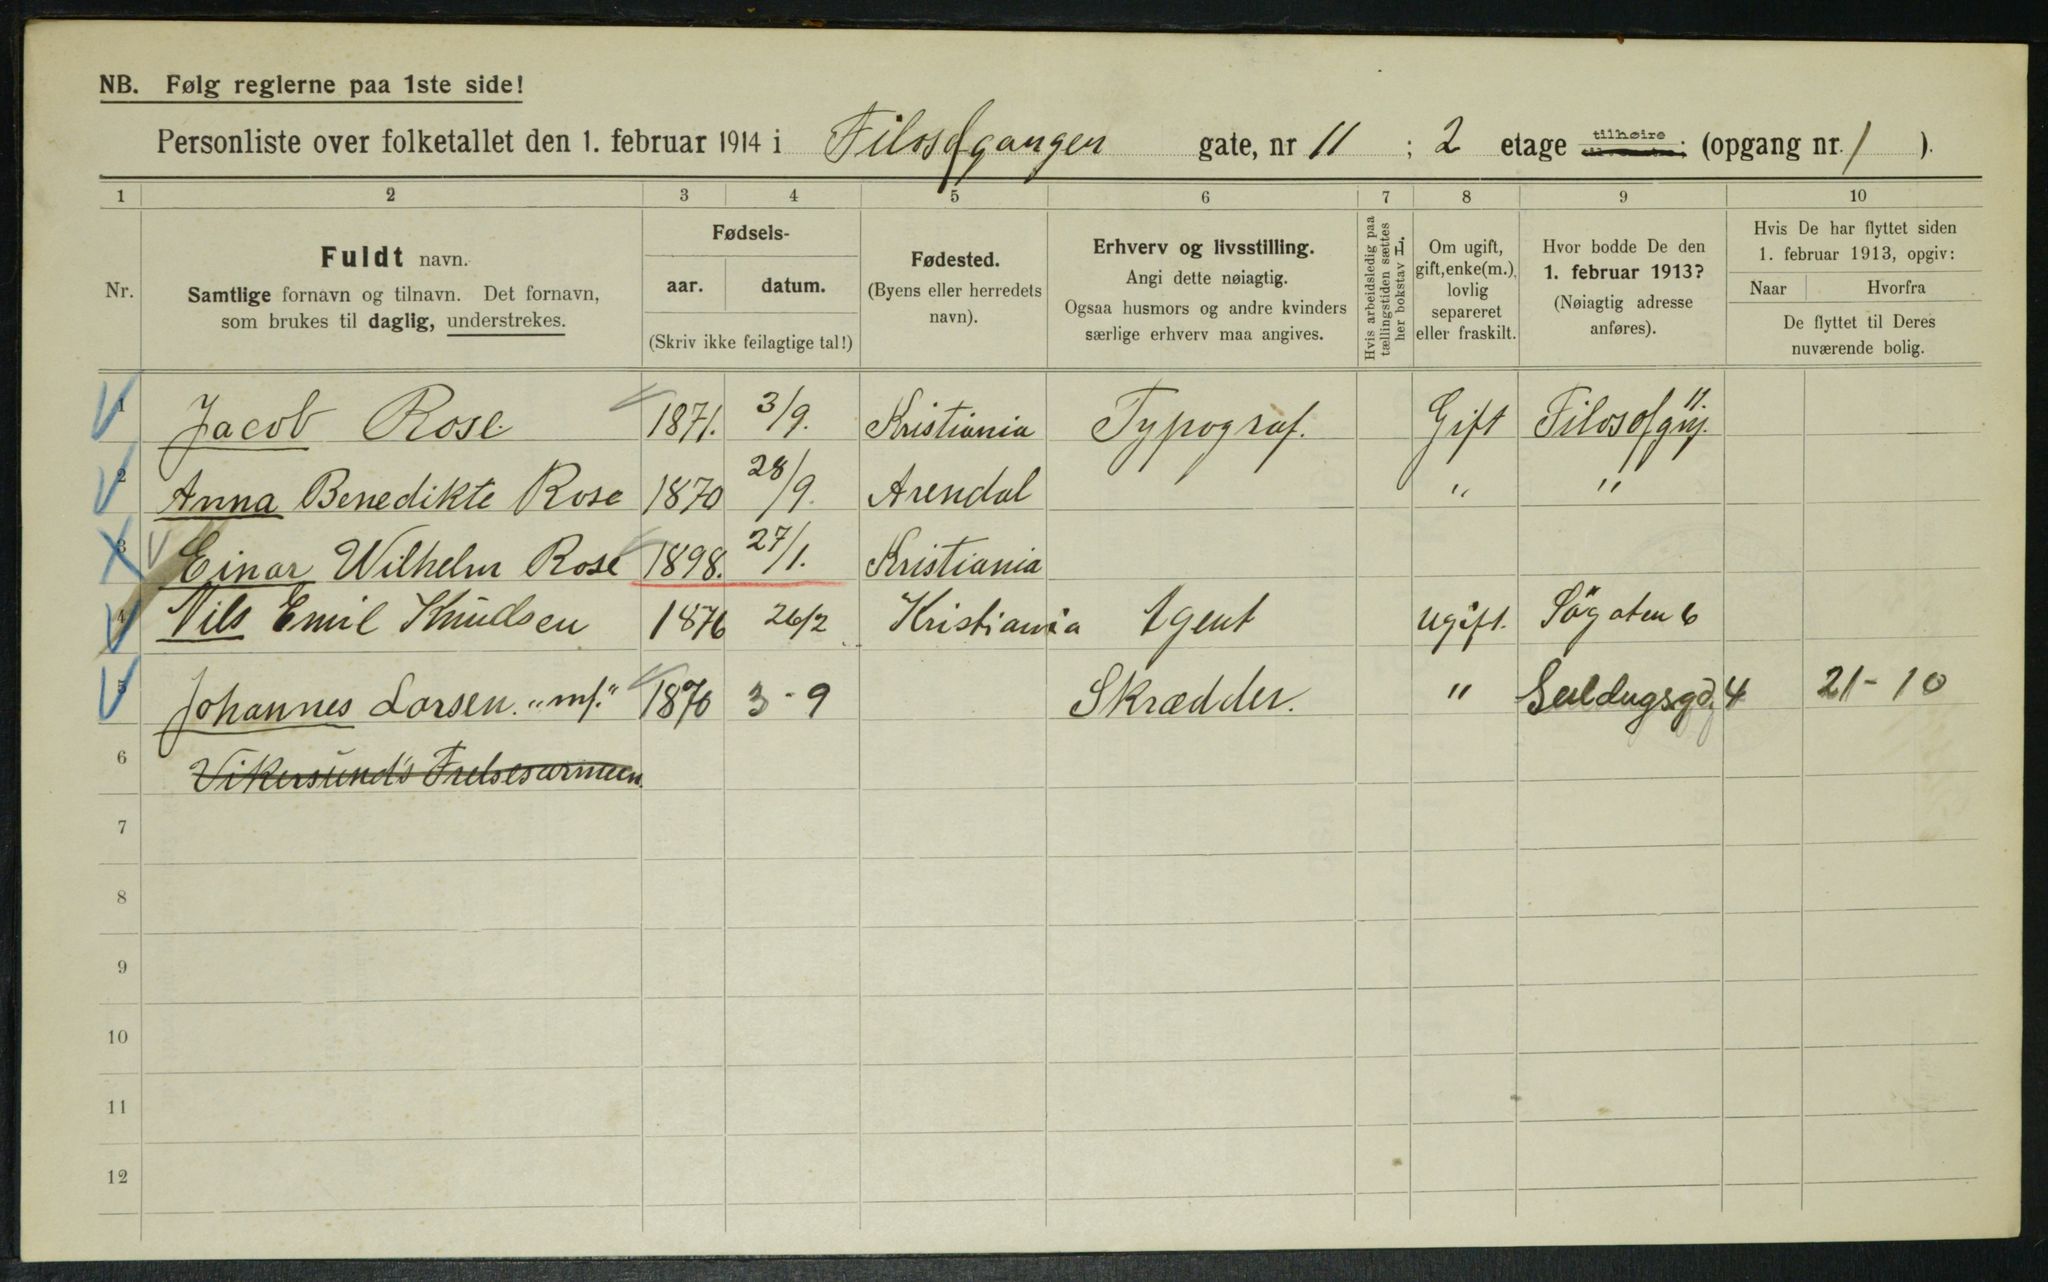 NB. Følg reglerne paa 1ste side!
Personliste over folketallet den 1. februar 1914 i Filosofgangen gate, nr 11 ; 2 etage tilhøire (opgang nr. 1 ).
1 2 3 4 5 6 7 8 9 10
Nr.
Fuldt navn.
Samtlige fornavn og tilnavn. Det fornavn,
som brukes til daglig, understrekes.
Fødsels-
aar. datum.
(Skriv ikke feilagtige tal!)
Fødested.
(Byens eller herredets
navn).
Erhverv og livsstilling.
Angi dette nøiagtig.
Ogsaa husmors og andre kvinders
særlige erhverv maa angives.
Hvis arbeidsledig paa
tællingstiden sættes
her bokstav L.
Om ugift,
gift, enke(m.),
lovlig
separeret
eller fraskilt.
Hvor bodde De den
1. februar 1913?
(Nøiagtig adresse
anføres).
Hvis De har flyttet siden
1. februar 1913, opgiv:
Naar Hvorfra
De flyttet til Deres
nuværende bolig.
1 Jacob Rose. 1871. 3/9. Kristiania Typograf. Gift Filosofgng. 11.
2 Anna Benedikte Rose 1870 28/9. Arendal " "
3 Einar Wilhelm Rose 1898. 27/1. Kristiania
4 Nils Emil Knudsen 1876 26/2 Kristiania Agent Ugift. Søgaten 6
5 Johannes Larsen. 1870 3-9 Skrædder. " 4 21-10
6 Vikersund's Frelsesarmeen.
7
8
9
10
11
12